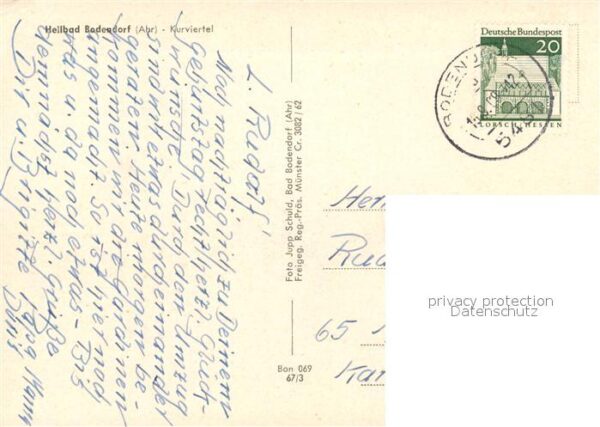 Heilbad Bodendorf (Ahr) - Kurviertel
L. Rudolf,
Noch nachträglich zu Deinem
Geb'tstag recht herzl. Glück-
wunsch. Durch den Umzug
sind wir etwas durcheinander
geraten. Heute morgen be-
kommen wir die Gardinen
angemacht. So ist hier noch
was u. da noch etwas - Bis
demnächst herzl. Grüße
Dir u. Brigitte
Foto Jupp Schuld, Bad Bodendorf (Ahr)
Freigeg. Reg.-Präs. Münster Cr. 3082/62
Ban 069
67/3
Deutsche Bundespost
20
LORSCH/HESSEN
BODENDORF
Her
Rud
65
Kar
privacy protection
Datenschutz